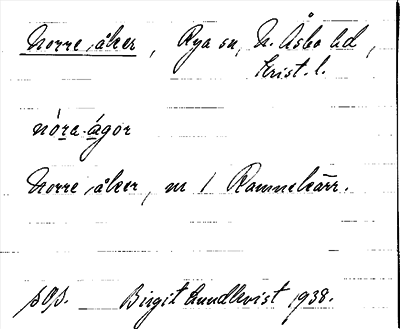 Norre,åker, Rya sn, N. Åsbo hd,
Krist. l.
nóra-ágor
Norre,åker, m / Rammekärr.
Birgit Lundkvist 1938.